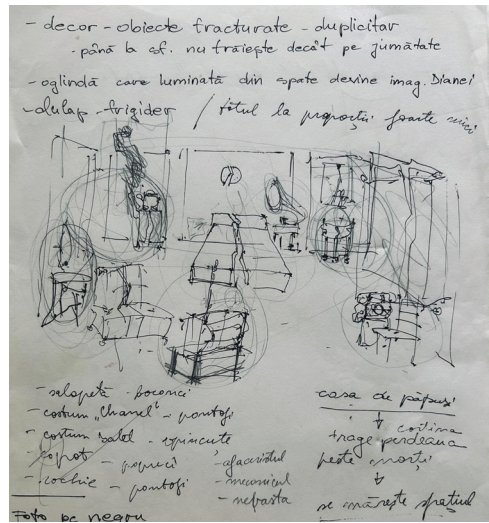 - decor - obiecte fracturate - duplicitar
- până la sf. nu trăiește decât pe jumătate
- oglindă care luminată din spate devine imag. Dianei
- dulap - frigider / totul la proporții foarte mici
- salopetă - bocanci
- costum "Chanel" - pantofi
- costum balet - espincute
- capot - papuci
- rochie - pantofi
- afaceristul
- mecanicul
- nevasta
Foto pe negru
casa de păpuși
cortina
trage perdeaua
peste morți
se mărește spațiul